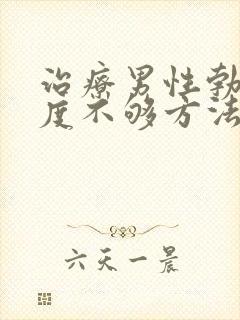 治療男性勃
度不够方法
六天一晨